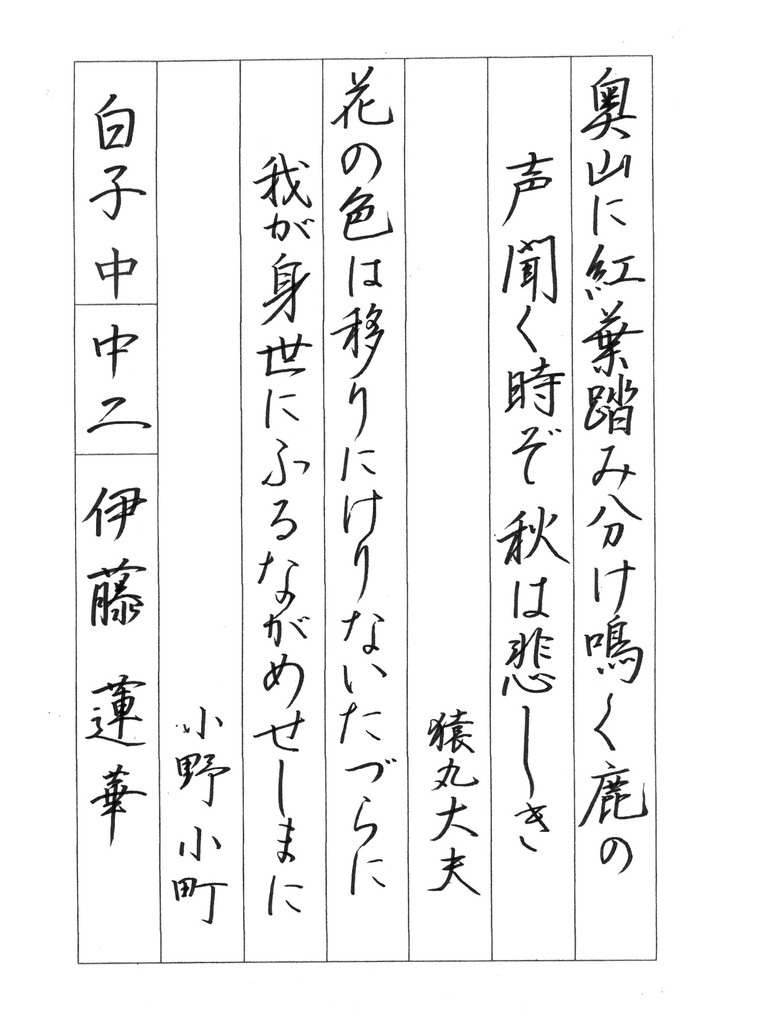 奥山に紅葉踏み分け鳴く鹿の
声聞く時ぞ秋は悲しき
猿丸大夫
花の色は移りにけりないたづらに
我が身世にふるながめせしまに
小野小町
白子中 中二 伊藤蓮華